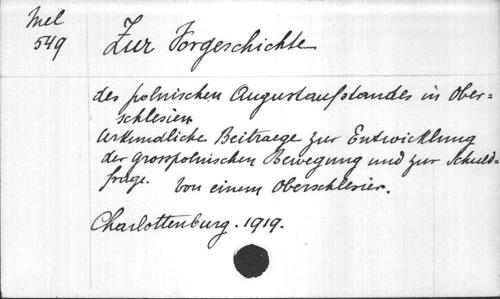 Mel
549
Zur Vorgeschichte
des polnischen Augustaufstandes in Ober=
schlesien
Urkundliche Beitraege zur Entwicklung
der grosspolnischen Bewegung und zur Schuld=
frage. Von einem Oberschlesier.
Charlottenburg. 1919.